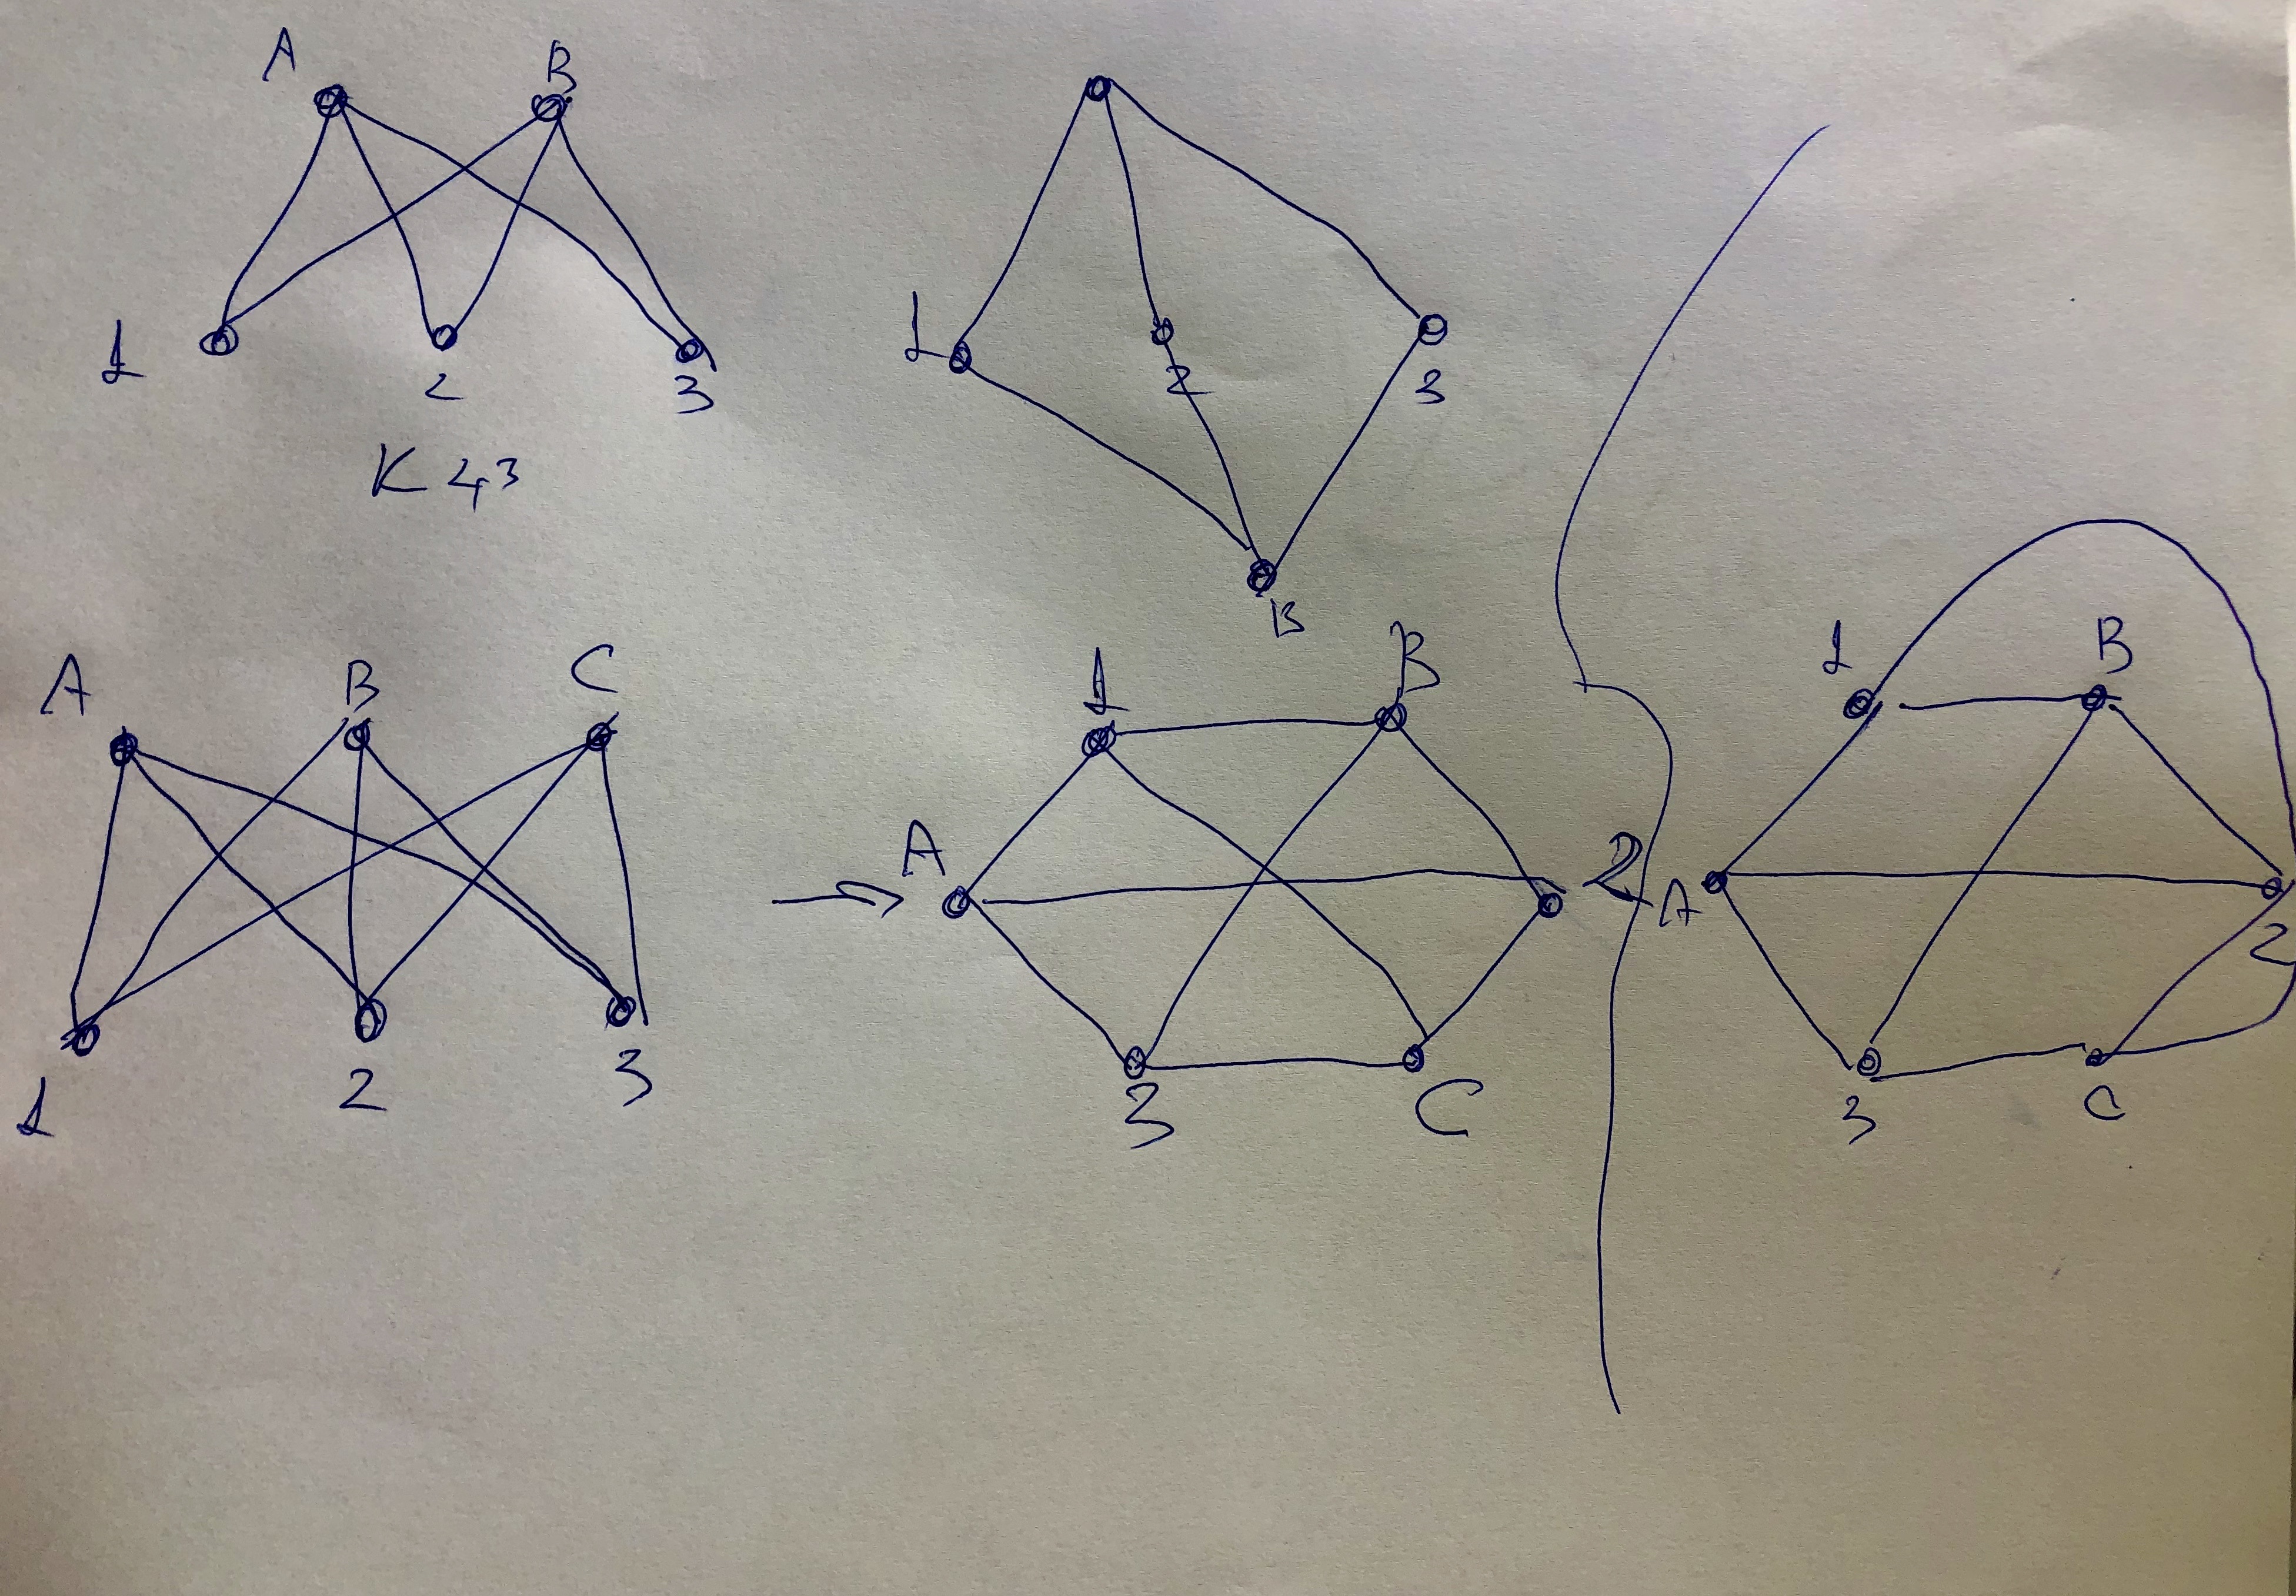 A B
1 2 3
K 4,3
1 2 3
B
A B C
1 2 3
1 B
A 2
3 C
1 B
A 2
3 C